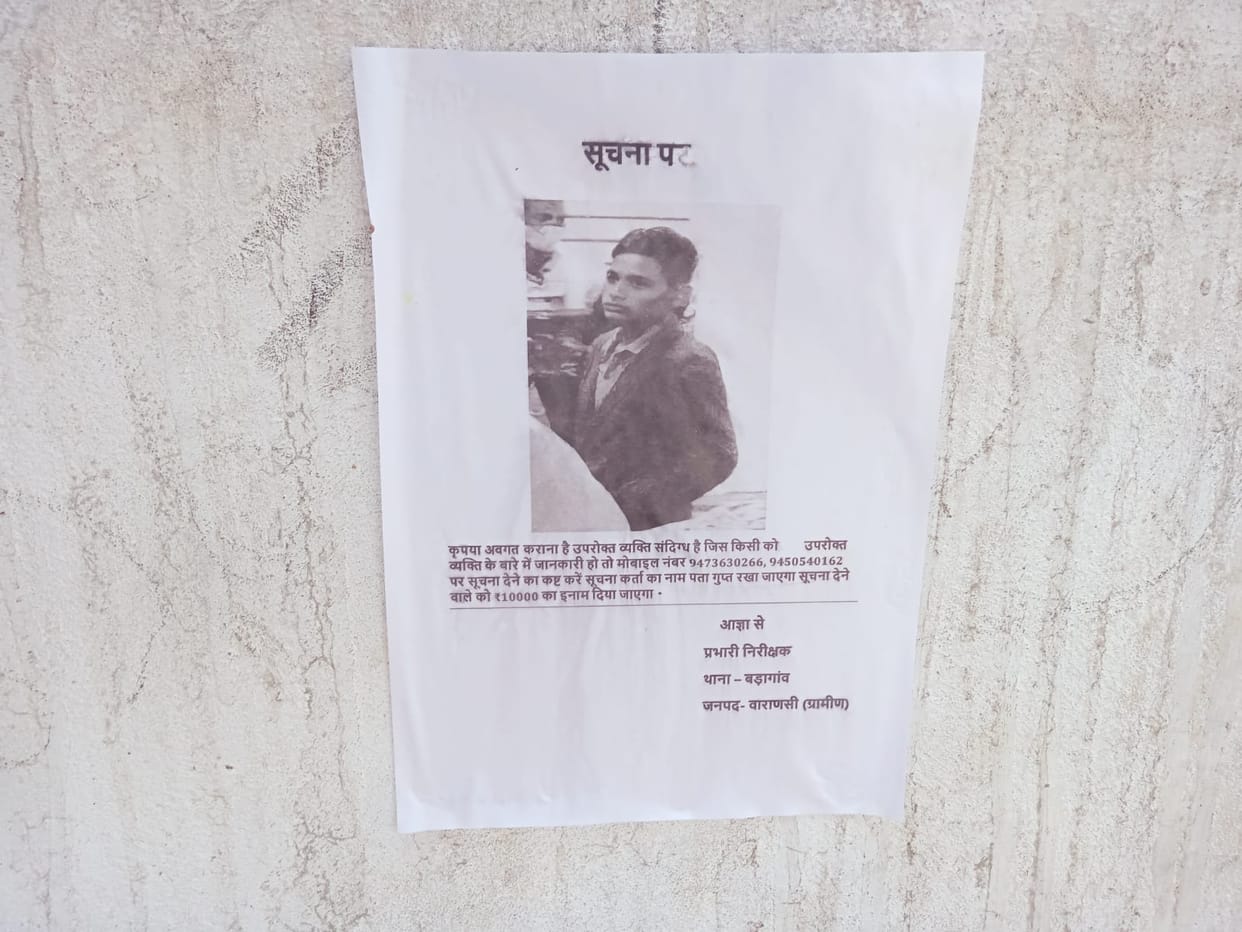 सूचना पट
कृपया अवगत कराना है उपरोक्त व्यक्ति संदिग्ध है जिस किसी को उपरोक्त
व्यक्ति के बारे में जानकारी हो तो मोबाइल नंबर 9473630266, 9450540162
पर सूचना देने का कष्ट करें सूचना कर्ता का नाम पता गुप्त रखा जाएगा सूचना देने
वाले को ₹10000 का इनाम दिया जाएगा •
आज्ञा से
प्रभारी निरीक्षक
थाना – बड़ागांव
जनपद- वाराणसी (ग्रामीण)